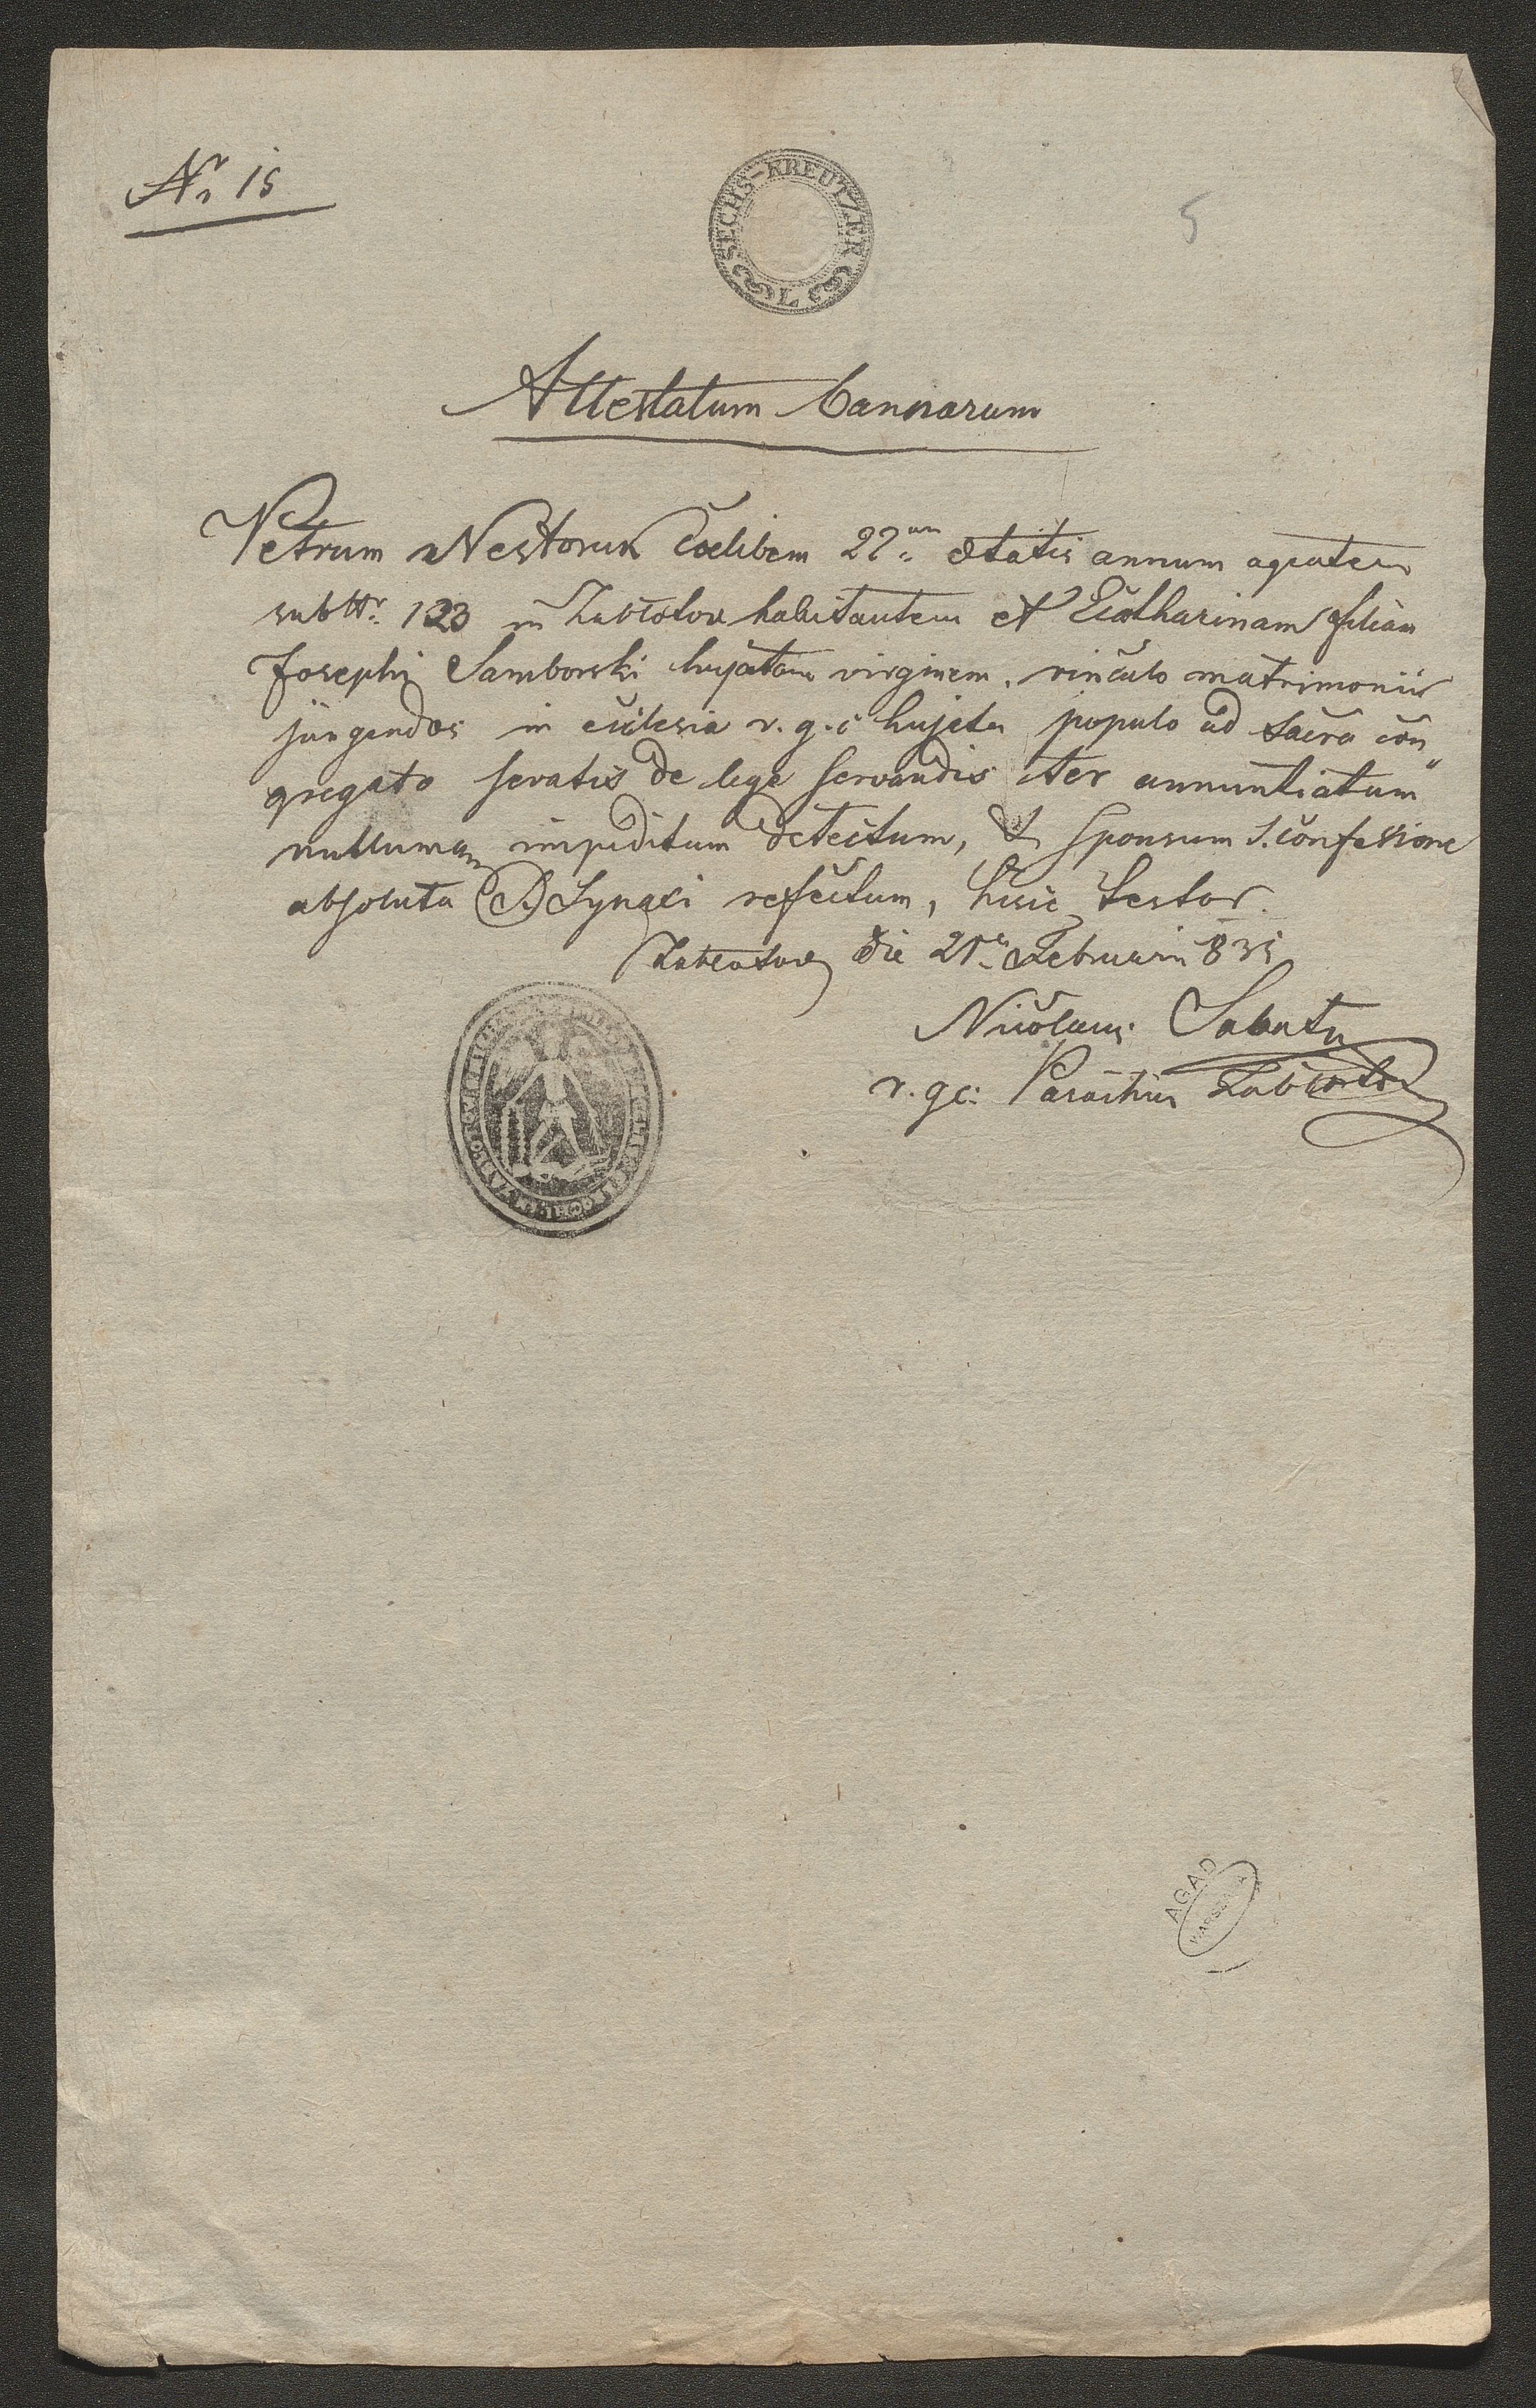 Nr 15
SECHS-KREUTZER
L
5
Attestatum bannorum
Petrum Nestoruk Coelibem 22um Etatis annum agentem
sub Nr. 123 in Zablotow habitantem et Ecatharinam filiam
Josephi Samborski hujatem virginem, vinculo matrimonii
jungendos in ecclesia r. g. c hujate populo ad sacra con„
gregato servatis de lege servandis ter annuntiatum
nullumque impeditum detectum, & sponsum S. confessione
absoluta S. Synaxi refectum, hisce testor.
Zablotow die 21a Februarii 835
Nicolaus
r. gc: Parochus Zablotow
AGAD
WARSZAWA